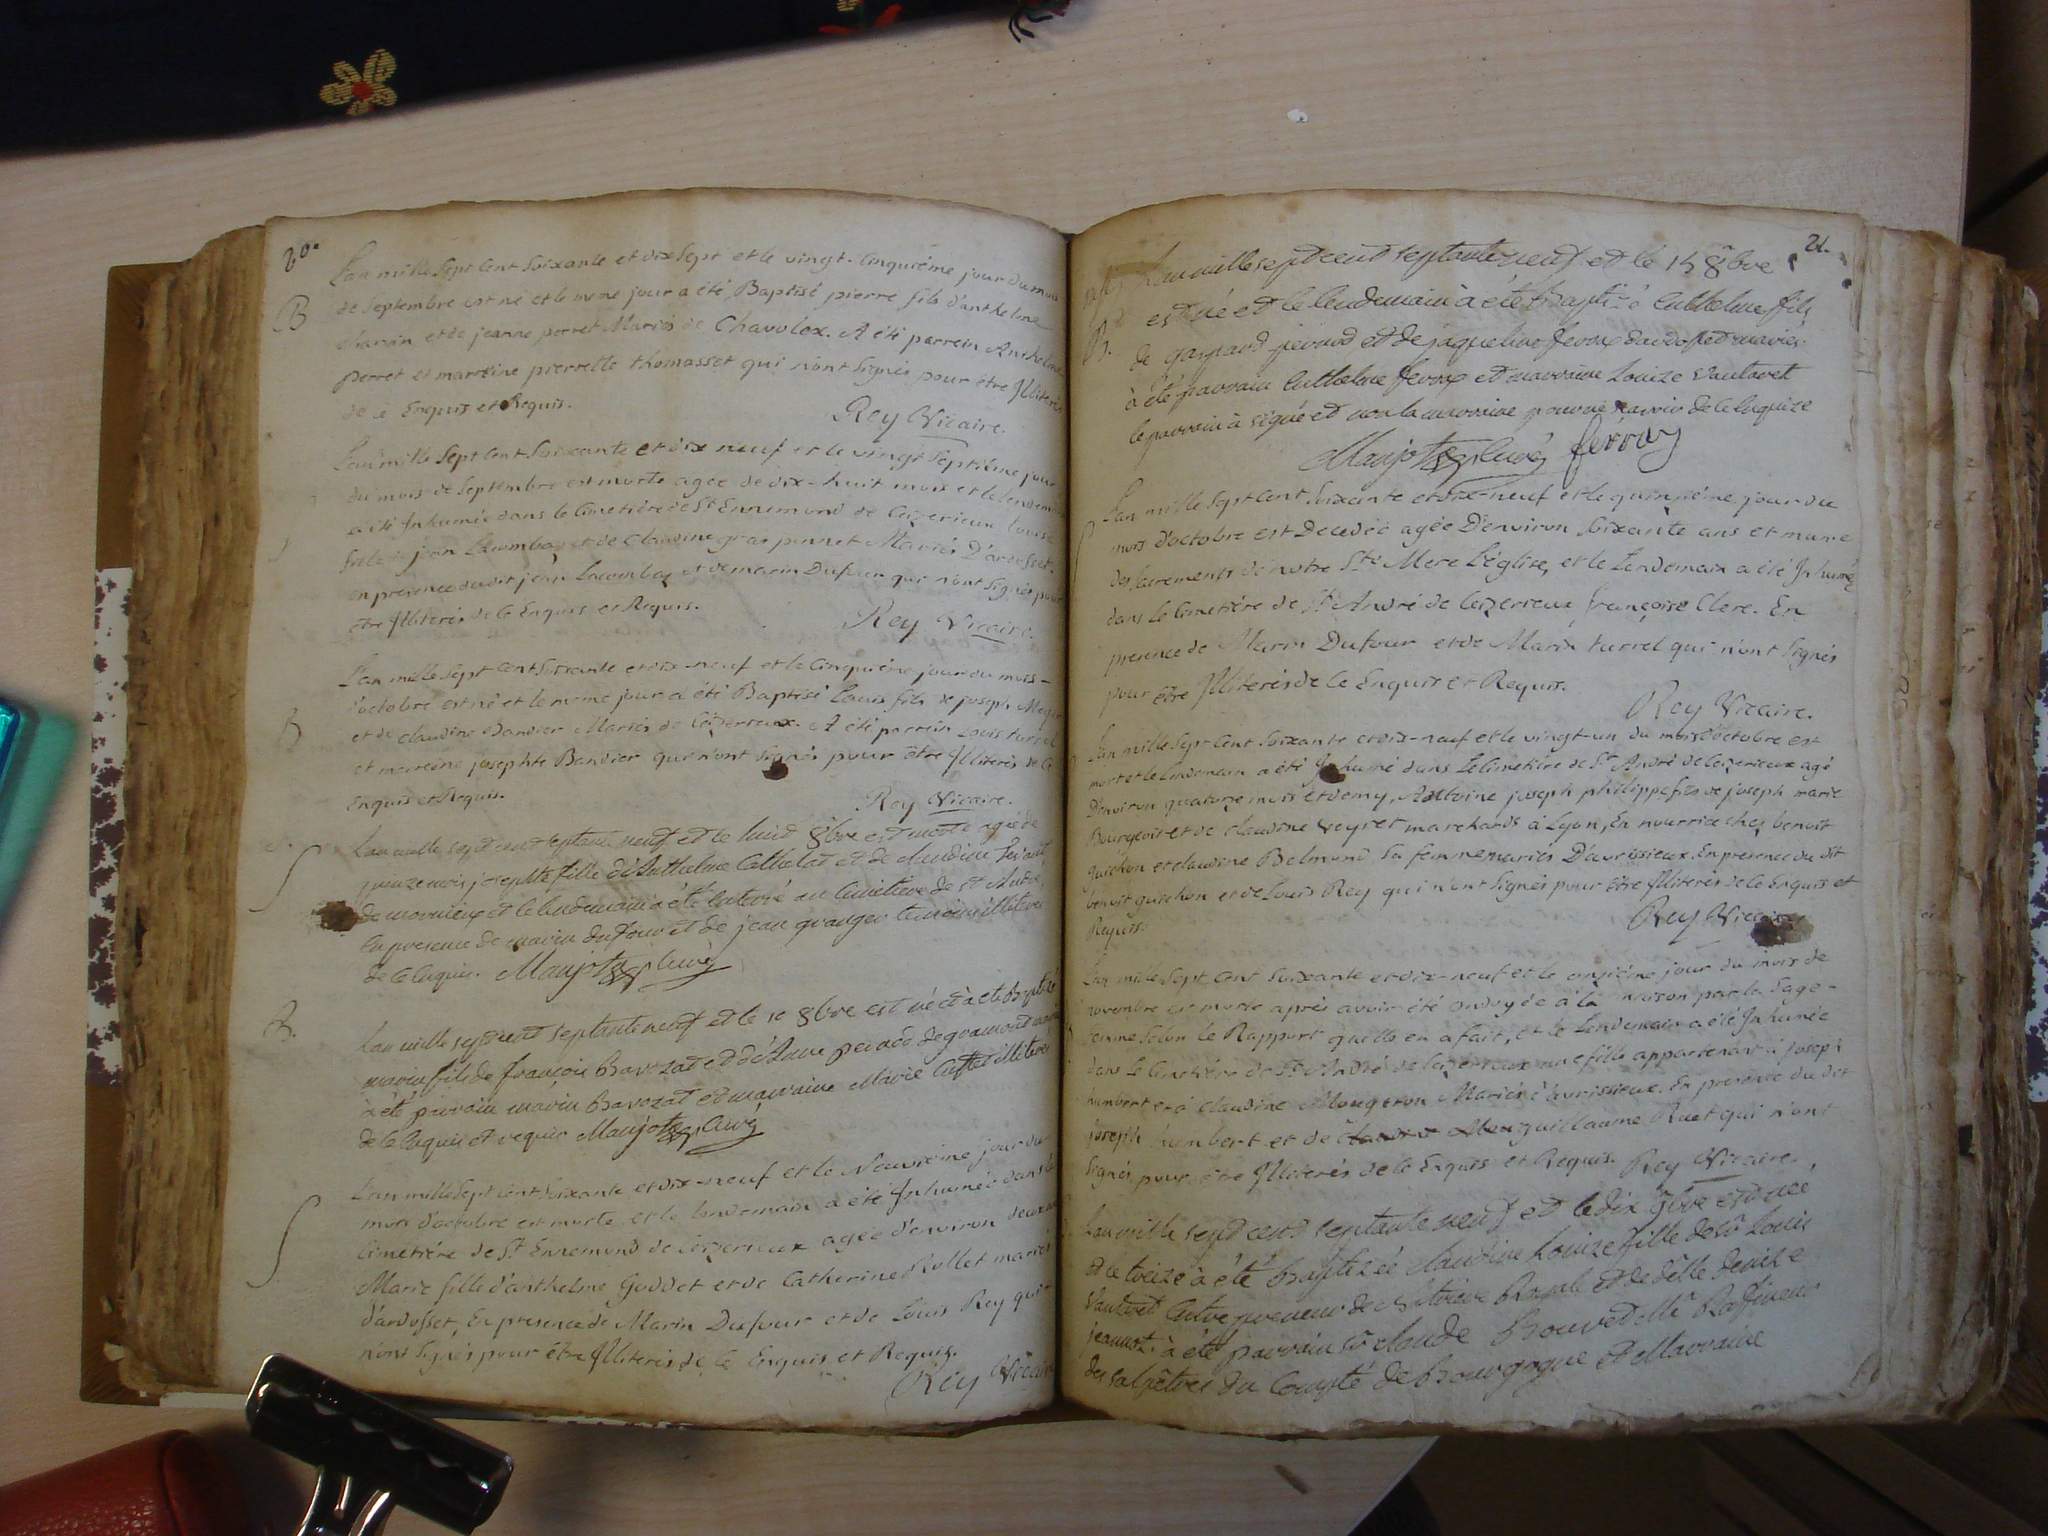 20.
L'an mille sept cent soixante et dix sept et le vingt-cinquiéme jour du mois
B
de septembre est né et le même jour a été Baptisé pierre fils d'anthelme
et de jeanne perret Mariés de Chavolex. A été parrein Anthelme
perret et marreine pierrette thomasset qui n'ont signés pour être Illiterés
de ce Enquis et Requis.
Rey Vicaire.
L'an mille sept cent soixante et dix neuf et le vingt septiéme jour
du mois de septembre est morte agée de dix-huit mois et le lendemain
a été Inhumée dans le Cimetiére de St Ennemond de Ceizerieux Louise
fille de jean Lacombaz et de Claudine gras pernet Mariés D'ardosset.
en presence dudit jean Lacombaz et de marin Dufour qui n'ont signés pour
être Illiterés de ce Enquis et Requis.
Rey Vicaire.
L'an mille sept cent soixante et dix-neuf et le Cinquiéme jour du mois
B
d'octobre est né et le même jour a été Baptisé Louis fils de joseph
et de claudine Bandier Mariés de Ceizerieux. A été parrein Louis turrel
et marreine josephte Bandier qui n'ont signés pour être Illiterés de ce
Enquis et Requis.
Rey Vicaire.
L'an mille sept cent septante neuf et le huit 8bre est morte agée de
quinze mois josephte fille d'Anthelme Cathelat et de claudine
de mornieux et le lendemain a été enterré au Cimetiere de st André
En presence de marin dufour et de jean granger temoins illiteres
de ce enquis. Maujot curé
B.
L'an mille sept cent septante neuf et le 10 8bre est né et à été Baptisé
marin fils de françois Bavozat et d'Anne de gramond
à été parrain marin Bavozat et marraine Marie illiteres
de ce enquis et requis Maujot curé
L'an mille sept cent soixante et dix-neuf et le Neuviéme jour du
mois d'octobre est morte et le lendemain a été Inhumée dans le
Cimetiére de St Ennemond de Ceizerieux agée d'environ deux ans
Marie fille d'anthelme Goddet et de Catherine Rollet mariés
d'ardosset, En presence de Marin Dufour et de Louis Rey qui
n'ont signés pour être Illiterés de ce Enquis et Requis.
Rey Vicaire
21.
L'an mille sept cent septante neuf et le 15 8bre
B.
est né et le lendemain à été baptizé Enthelme fils
de gaspard et de jaqueline ferroz d'ardosset mariés
à été parrain Enthelme ferroz et marraine Louize Vautaret
le parrain à signé et non la marraine pour ne savoir de ce enquize
Maujot curé ferroz
L'an mille sept cent soixante et dix-neuf et le quinziéme jour du
mois d'octobre est Decedée agée D'environ soixante ans et munie
des sacrements de notre Ste Mere L'église, et le Lendemain a été Inhumée
dans le Cimetiére de St André de Ceizerieux françoise Clerc. En
presence de Marin Dufour et de Marin turrel qui n'ont signés
pour être Illiterés de ce Enquis et Requis.
Rey Vicaire.
L'an mille sept cent soixante et dix-neuf et le vingt-un du mois d'octobre est
mort et le lendemain a été Inhumé dans Le Cimetiére de St André de Ceizerieux agé
D'environ quatorze mois et demy, Antoine joseph philippe fils de joseph marie
Bourgeois et de claudine veyret marchands à Lyon, En nourrice chez benoit
guichon et claudine Belmond sa femme mariés D'avressieux. En presence du dit
benoit guichon et de Louis Rey qui n'ont signés pour être Illiterés de ce Enquis et
Requis.
Rey Vicaire
L'an mille sept cent soixante et dix-neuf et le onziéme jour du mois de
novembre est morte aprés avoir été ondoyée à la maison par la sage-
femme selon le Rapport qu'elle en a fait, et le Lendemain a été Inhumée
dans Le Cimetiére de St André de Ceizerieux une fille appartenant à joseph
humbert et à claudine Mongeron Mariés d'avrissieux. En presence du dit
joseph humbert et de guillaume Ruet qui n'ont
signés pour être Illiterés de ce Enquis et Requis. Rey Vicaire.
L'an mille sept cent septante neuf et le dix 9bre est née
et le treize à été baptizée claudine Louize fille de Sr Louis
Vautaret Entrepreneur de Royale et de dlle Denize
jeannot. à été parrain Sr claude Bouvet Me Raffineur
des salpêtres du Compté de Bourgogne et Marraine